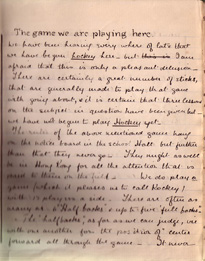 The game we are playing here.
We have been hearing every where of late that
we have begun hockey here - but I am
afraid that this is only a pleasant delusion.
There are certainly a great number of sticks,
that are generally made to play that game
with going about, & it is certain that three lessons
on the subject in question have been given but
we have not begun to play Hockey yet.
The rules of the above mentioned game hang
on the notice board in the school Hall but further
than that they never go. They might as well
be in Hong Kong for all the attention that is
paid to them on the field. We do play a
game (which it pleases us to call Hockey)
with players on a side. There are often as
many as 6 "Half backs" & up to five "full backs"
The "half backs", as far as we can judge, vie
with one another for the position of centre
forward all through the game. It never